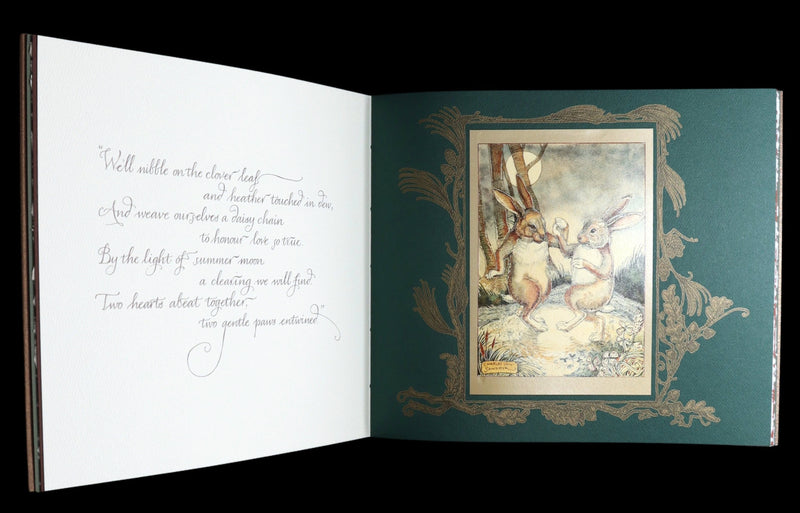 "We'll nibble on the clover leaf
and heather touched in dew,
And weave ourselves a daisy chain
to honour love so true.
By the light of summer moon
a clearing we will find.
Two hearts abeat together,
two gentle paws entwined"
CHARLES